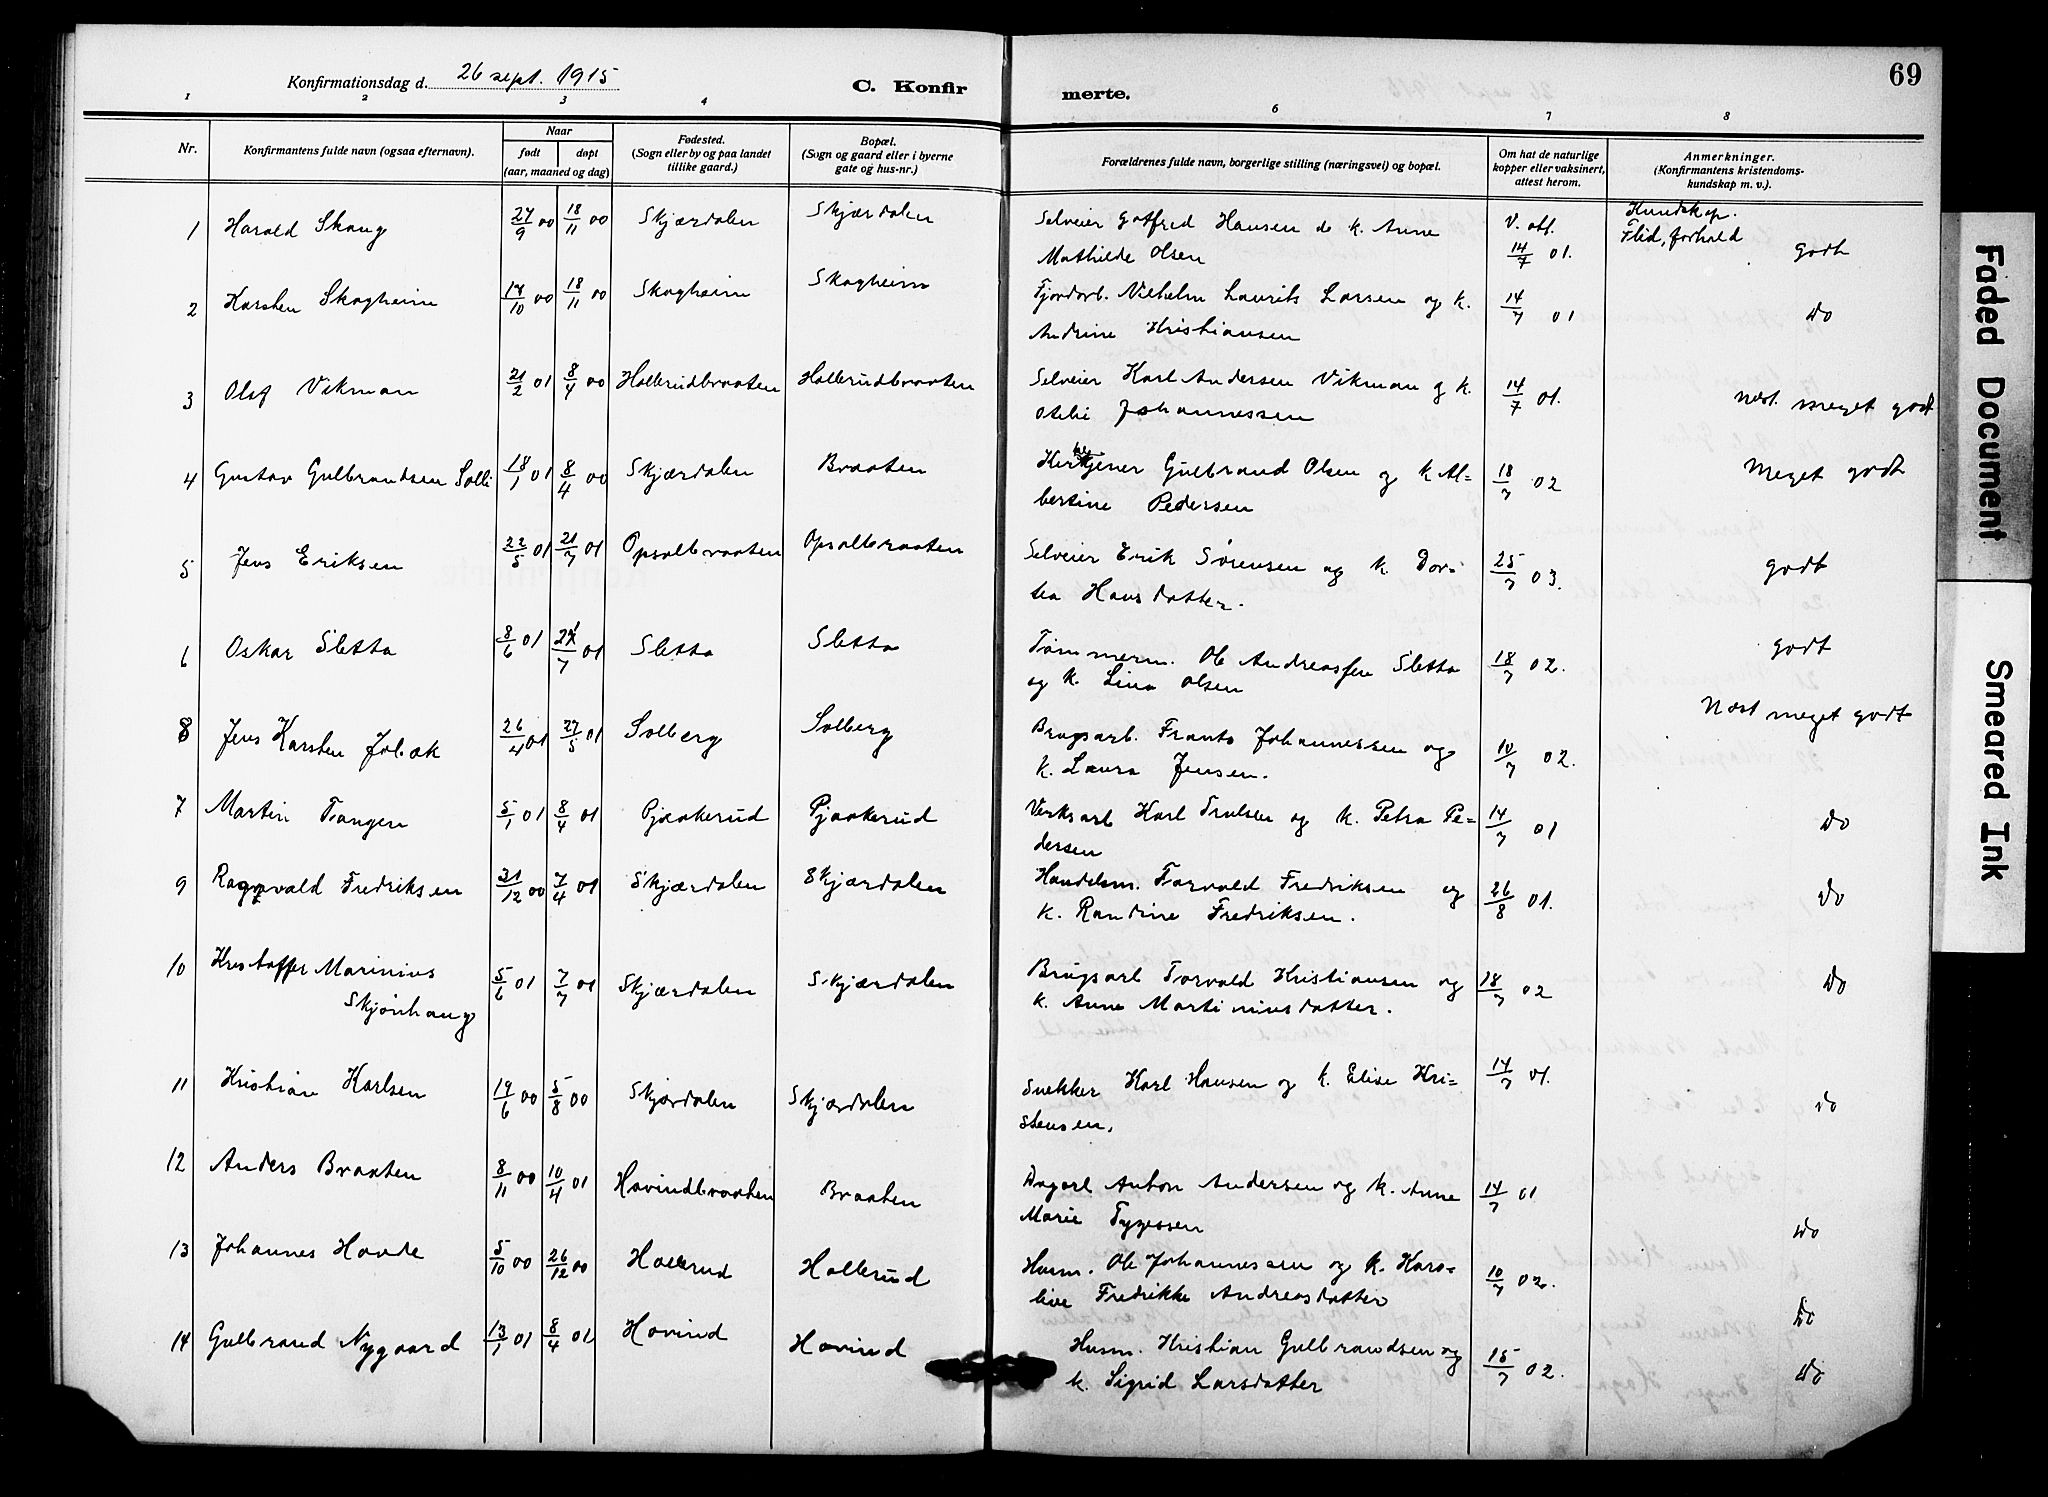 69
Konfirmationsdag d. 26 sept. 1915
C. Konfirmerte.
1 2 3 4 5 6 7 8
Nr. Konfirmantens fulde navn (ogsaa efternavn). Naar født døpt (aar, maaned og dag) Fødested. (Sogn eller by og paa landet tillike gaard.) Bopæl. (Sogn og gaard eller i byerne gate og hus-nr.) Forældrenes fulde navn, borgerlige stilling (næringsvei) og bopæl. Om hat de naturlige kopper eller vaksinert, attest herom. Anmerkninger. (Konfirmantens kristendomskundskap m. v.).
Kundskap.
Flid, forhold
1 Harald Skaug 27/9 00 18/11 00 Skjærdalen Skjærdalen Selveier Gotfred Hansen & k. Anne V. att.
Mathilde Olsen 14/7 01. godt
2 Karsten Skogheim 14/10 00 18/11 00 Skogheim Skogheim Fjordarb. Vilhelm Laurits Larsen og k. 14/7 01 do
Andrine Kristiansen
3 Olaf Vikman 21/2 01 8/4 00 Hollerudbraaten Hollerudbraaten Selveier Karl Andersen Vikman og k. 14/7 01. næst meget godt
Otelie Johannessen
4 Gustav Gulbrandsen Solli 18/1 01 8/4 00 Skjærdalen Braaten Gulbrand Olsen og k. Al= 18/7 02 meget godt
bertine Pedersen
5 Jens Eriksen 22/5 01 21/7 01 Opsalbraaten Opsalbraaten Selveier Erik Sørensen og k. Dor= 25/7 03. godt
tea Hansdatter.
6 Oskar Sletta 8/6 01 21/7 01 Sletta Sletta Tømmerm. Ole Andreassen Sletta 18/7 02. godt
og k. Lina Olsen
8 Jens Karsten 26/4 01 27/5 01 Solberg Solberg Brugsarb. Frants Johannessen og 10/7 02. Næst meget godt
k. Laura Jensen.
7 Martin Tangen 5/1 01 8/4 01 Pjaakerud Pjaakerud Verksarb Karl Trulsen og k. Petra Pe= 14/7 01 do
dersen
9 Ragnvald Fredriksen 31/12 00 7/4 01 Skjærdalen Skjærdalen Handelsm. Torvald Fredriksen og 26/8 01. do
k. Randine Fredriksen.
10 Kristoffer Marinius 5/6 01 7/7 01 Skjærdalen Skjærdalen Brugsarb Torvald Kristiansen og 18/7 02 do
Skjønhaug k. Anne Martiniusdatter.
11 Kristian Karlsen 19/6 00 5/8 00 Skjærdalen Skjærdalen Snekker Karl Hansen og k. Elise Kri= 14/7 01. do
stensen.
12 Anders Braaten 8/11 00 10/4 01 Hovindbraaten Braaten Dagarb Anton Andersen og k. Anne 14/7 01 do
Marie Tygessen
13 Johannes Hovde 5/10 00 26/12 00 Hollerud Hollerud Husm. Ole Johannessen og k. Karo= 10/7 02. do
line Fredrikke Andreasdatter
14 Gulbrand Nygaard 13/1 01 8/4 01 Hovind Hovind Husm. Kristian Gulbrandsen og 15/7 02. do
k. Sigrid Larsdatter
Faded Document
Smeared Ink